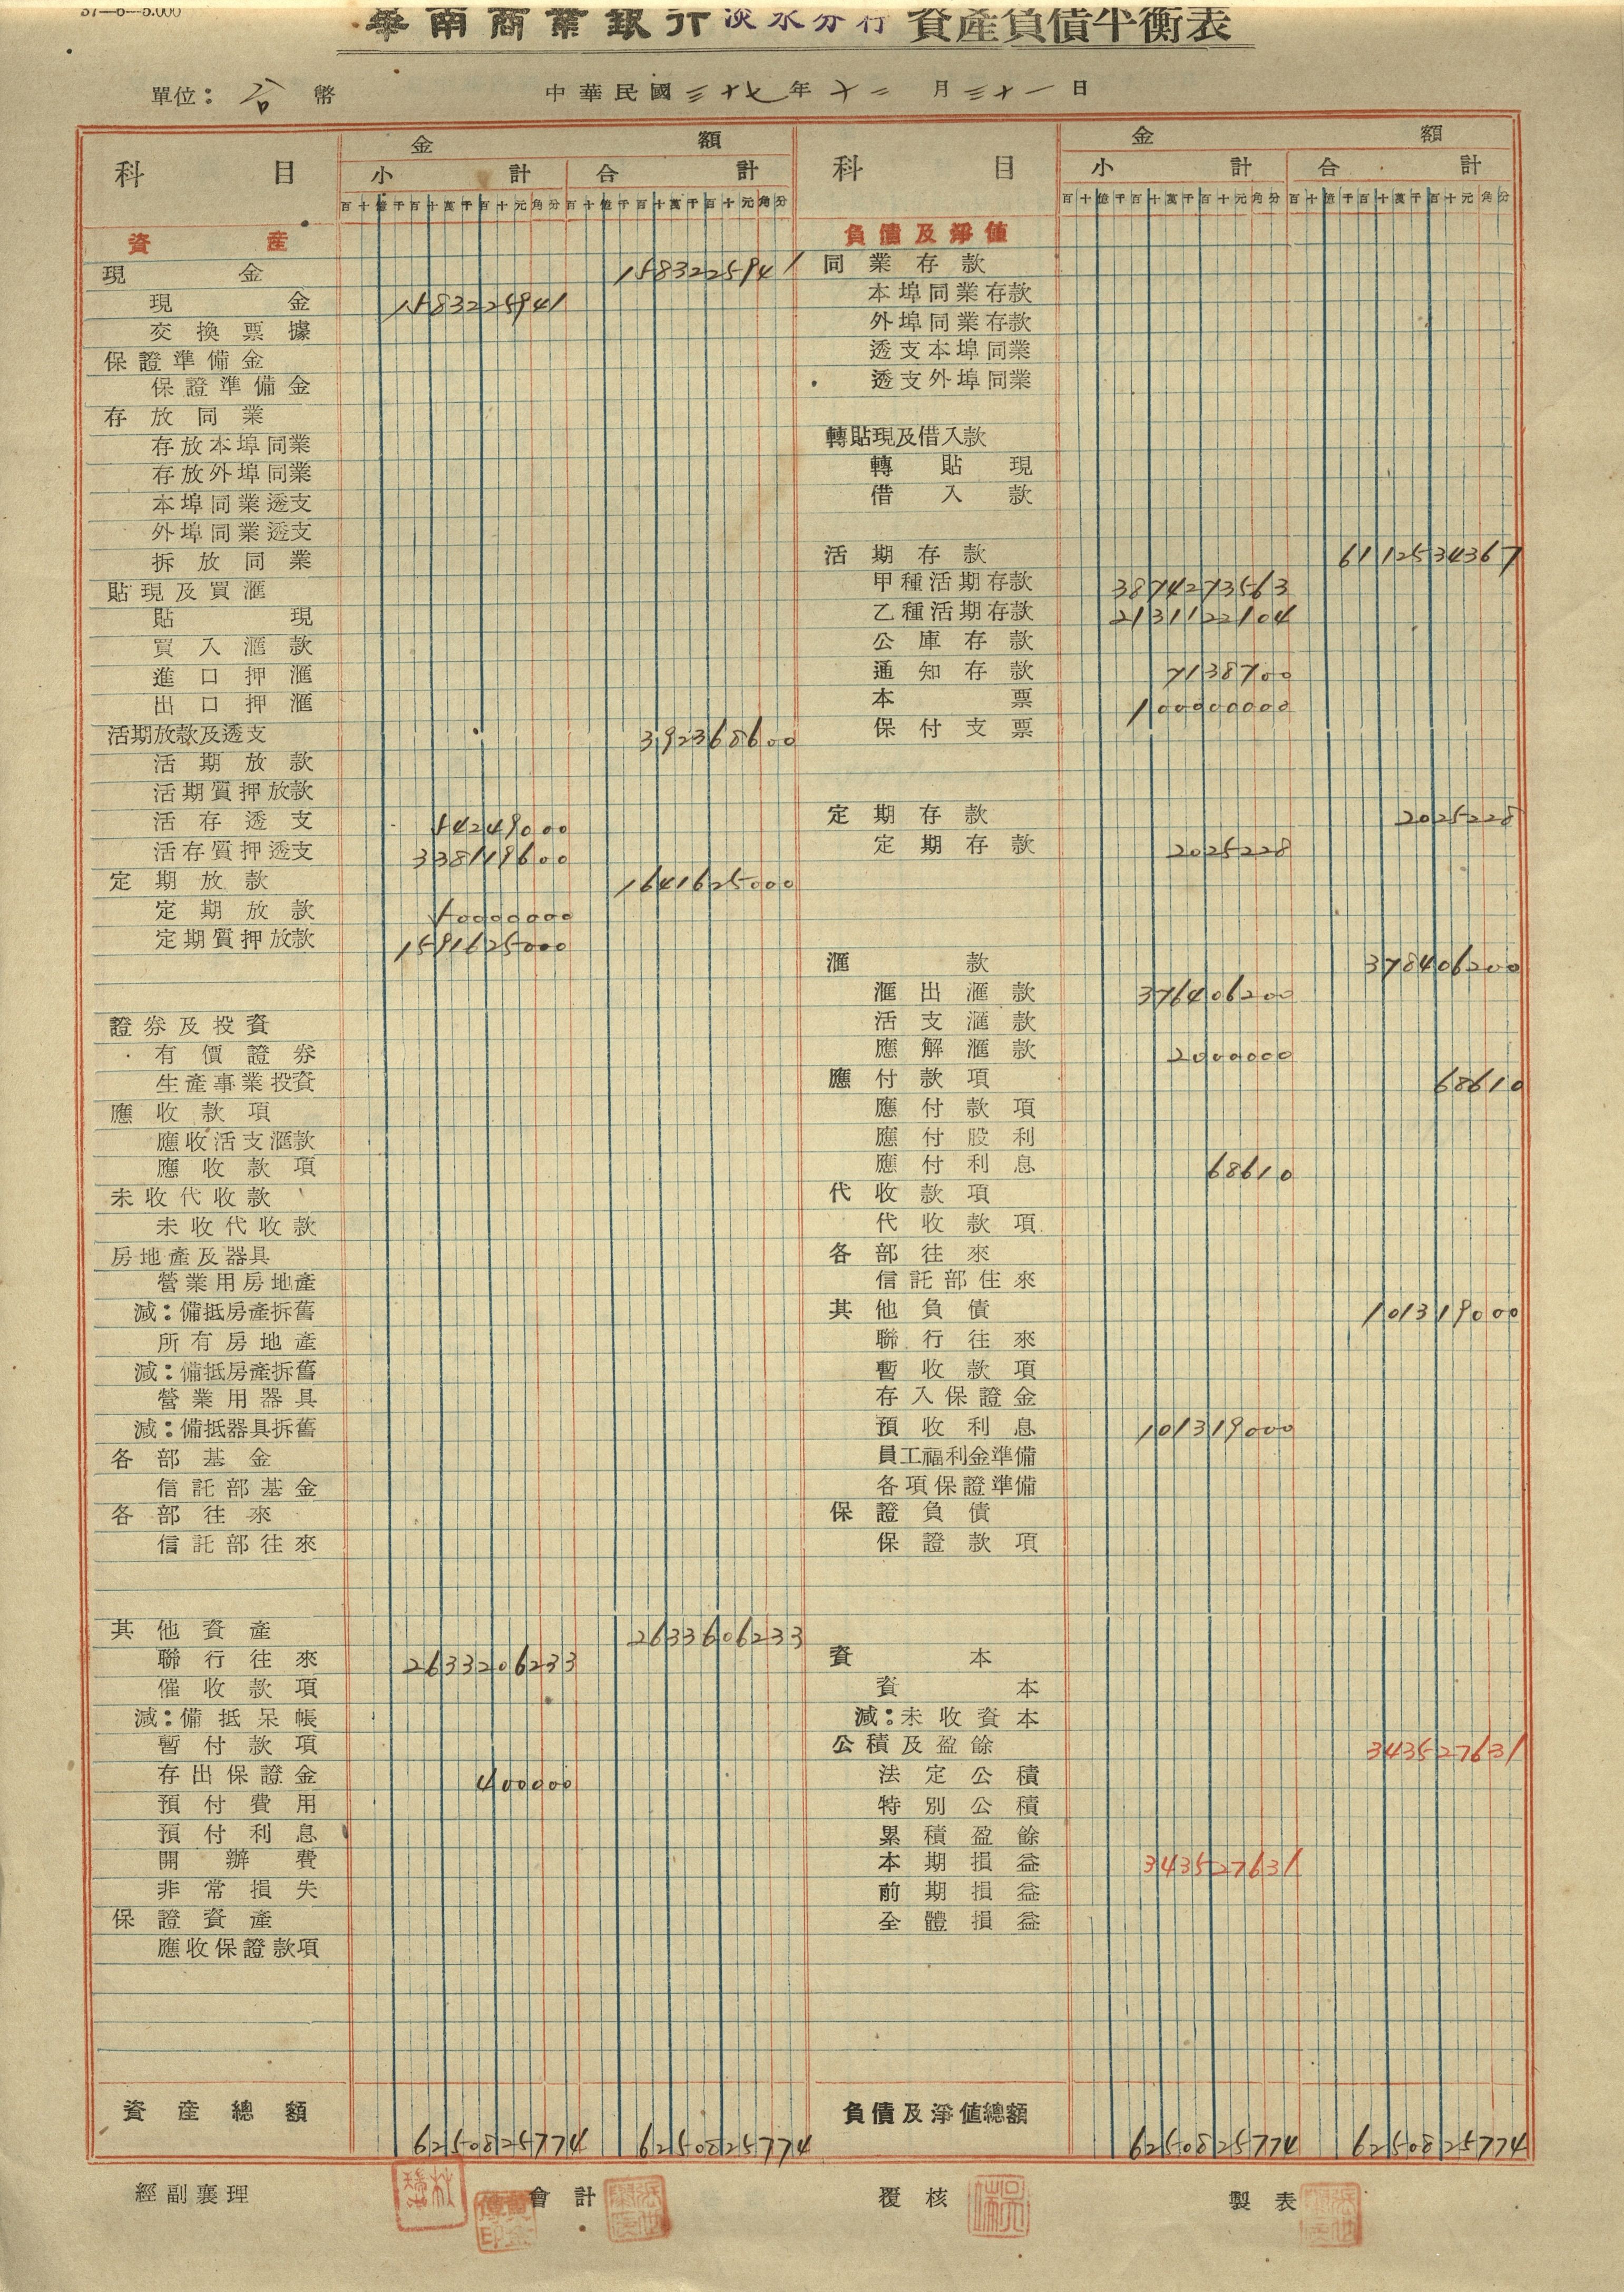 37—6—5.000
華南商業銀行淡水分行資產負債平衡表
單位：台幣
中華民國三十七年十二月三十一日
科目 金額
小計 合計
百十億千百十萬千百十元角分 百十億千百十萬千百十元角分
資產
現金 1583225941
現金 1583225941
交換票據
保證準備金
保證準備金
存放同業
存放本埠同業
存放外埠同業
本埠同業透支
外埠同業透支
拆放同業
貼現及買滙
貼現
買入滙款
進口押滙
出口押滙
活期放款及透支 392368600
活期放款
活期質押放款
活存透支 54249000
活存質押透支 338119600
定期放款 1641625000
定期放款 50000000
定期質押放款 1591625000
證券及投資
有價證券
生產事業投資
應收款項
應收活支滙款
應收款項
未收代收款
未收代收款
房地產及器具
營業用房地產
減：備抵房產拆舊
所有房地產
減：備抵房產拆舊
營業用器具
減：備抵器具拆舊
各部基金
信託部基金
各部往來
信託部往來
其他資產 2633606233
聯行往來 2633206233
催收款項
減：備抵呆帳
暫付款項
存出保證金 400000
預付費用
預付利息
開辦費
非常損失
保證資產
應收保證款項
資產總額 6250825774 6250825774
科目 金額
小計 合計
百十億千百十萬千百十元角分 百十億千百十萬千百十元角分
負債及淨值
同業存款
本埠同業存款
外埠同業存款
透支本埠同業
透支外埠同業
轉貼現及借入款
轉貼現
借入款
活期存款 6112534367
甲種活期存款 3874273563
乙種活期存款 2131122104
公庫存款
通知存款 7138700
本票 100000000
保付支票
定期存款 2025228
定期存款 2025228
滙款 378406200
滙出滙款 376406200
活支滙款
應解滙款 2000000
應付款項 68610
應付款項
應付股利
應付利息 68610
代收款項
代收款項
各部往來
信託部往來
其他負債 101319000
聯行往來
暫收款項
存入保證金
預收利息 101319000
員工福利金準備
各項保證準備
保證負債
保證款項
資本
資本
減：未收資本
公積及盈餘 343527631
法定公積
特別公積
累積盈餘
本期損益 343527631
前期損益
全體損益
負債及淨值總額 6250825774 6250825774
經副襄理 會計 覆核 製表